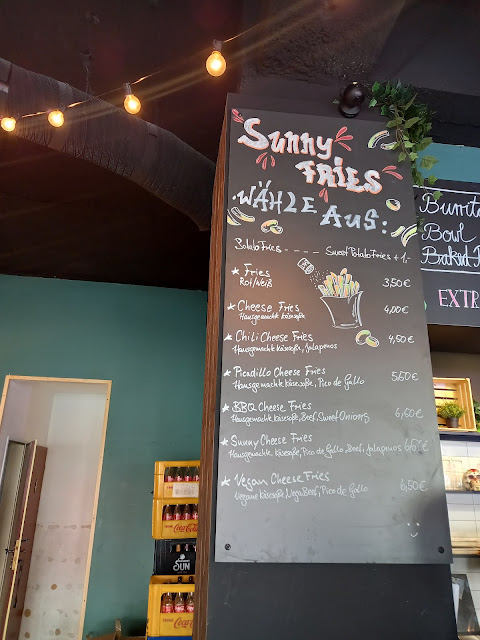 Sunny
FRIES
WÄHLE AUS:
SweetPotatoFries + 1,-
Fries 3,50€
Rot/Weiß
Cheese Fries 4,00€
Hausgemachte Käsesoße
Chili Cheese Fries 4,50€
Hausgemachte Käsesoße, Jalapenos
Picadillo Cheese Fries 5,50€
Hausgemachte Käsesoße, Pico de Gallo
BBQ Cheese Fries 6,00€
Hausgemachte Käsesoße, Beef, Sweet Onions
Sunny Cheese Fries
Hausgemachte Käsesoße, Pico de Gallo, Beef, Jalapenos
Vegan Cheese Fries 6,50€
Vegane Käsesoße, Vega Beef, Pico de Gallo
Bowl
Baked
EXTR
Coca-Cola
SUN
Coca-Cola